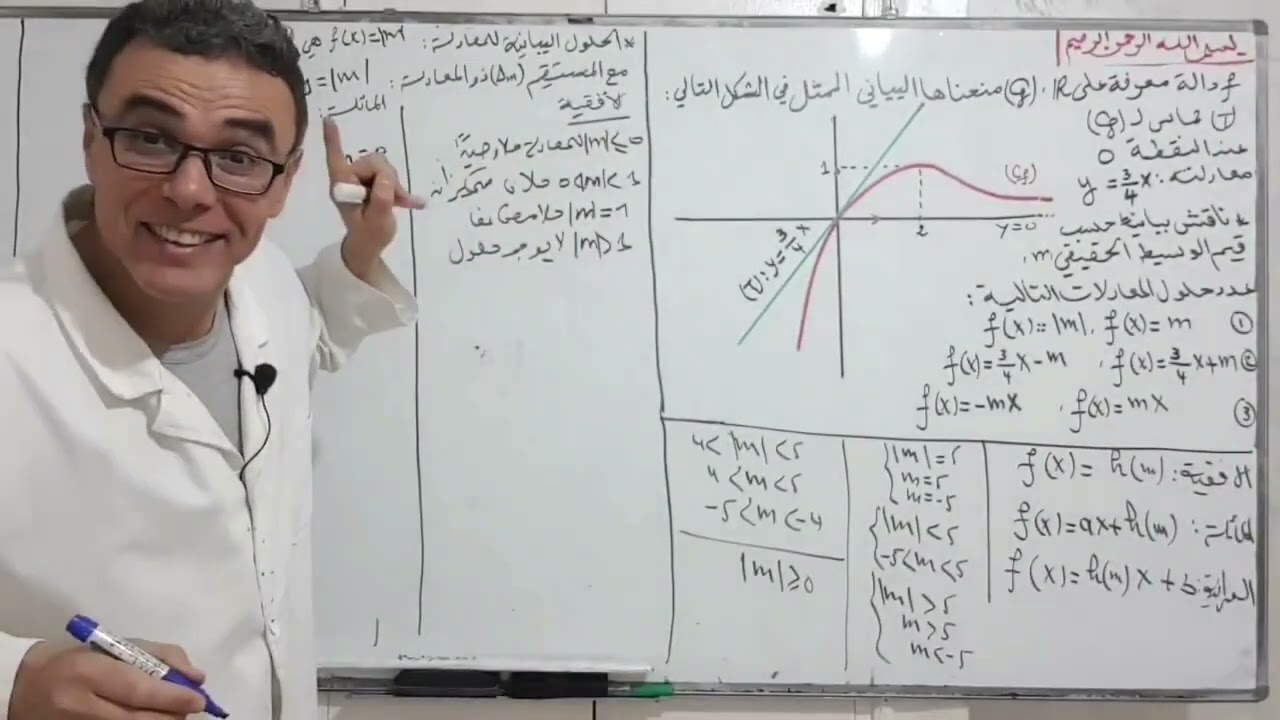 بسم الله الرحمن الرحيم
f دالة معرفة على R، (Cf) منحناها البياني الممثل في الشكل التالي:
(T) مماس لـ (Cf)
عند النقطة O
معادلته: y = 3/4 x
* ناقش بيانيا حسب
قيم الوسيط الحقيقي m
عدد حلول المعادلات التالية:
① f(x) = m ، f(x) = |m|
② f(x) = 3/4 x + m ، f(x) = 3/4 x - m
③ f(x) = mx ، f(x) = -mx
1
2
(Cf)
y=0
(T): y = 3/4 x
الأفقية: f(x) = h(m)
المائلة: f(x) = ax + h(m)
f(x) = h(m)x + b
|m| = 5
m = 5
m = -5
|m| < 5
-5 < m < 5
|m| > 5
m > 5
m < -5
4 < |m| < 5
4 < m < 5
-5 < m < -4
|m| ≥ 0
* الحلول البيانية للمعادلة: f(x) = |m| هي
مع المستقيم (Δm) ذو المعادلة: y = |m|
الأفقية
|m| = 1
|m| > 1 لا يوجد حلول